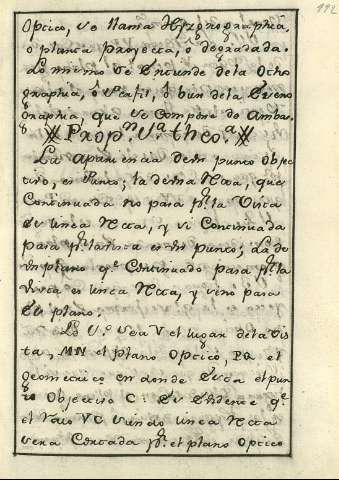 112
Optico, se llama Hyznographia,
ò planta proyecta, ò degradada.
Lo mismo se entiende de la Otho
graphia, ò Perfil, ò bien de la Sceno
graphia, que se compone de ambas.
Propn. 1.a theo.a
La apariencia de un punto obje
tivo, es Punto; la de una Recta, que
Continuada no pasa pr. la Vista
es una Recta, y si Continuada
pasa pr. la vista es un punto; La de
un plano qe. Continuado pasa pr. la
vista es una Recta, y si no pasa
es plano:
Lo 1.o sea V el lugar de la Vis
ta, MN el plano Optico, PQ el
geometrico en donde esta el pun
to Objectivo C: es evidente qe.
el raio VC siendo una Recta
sera Cortada pr. el plano Optico